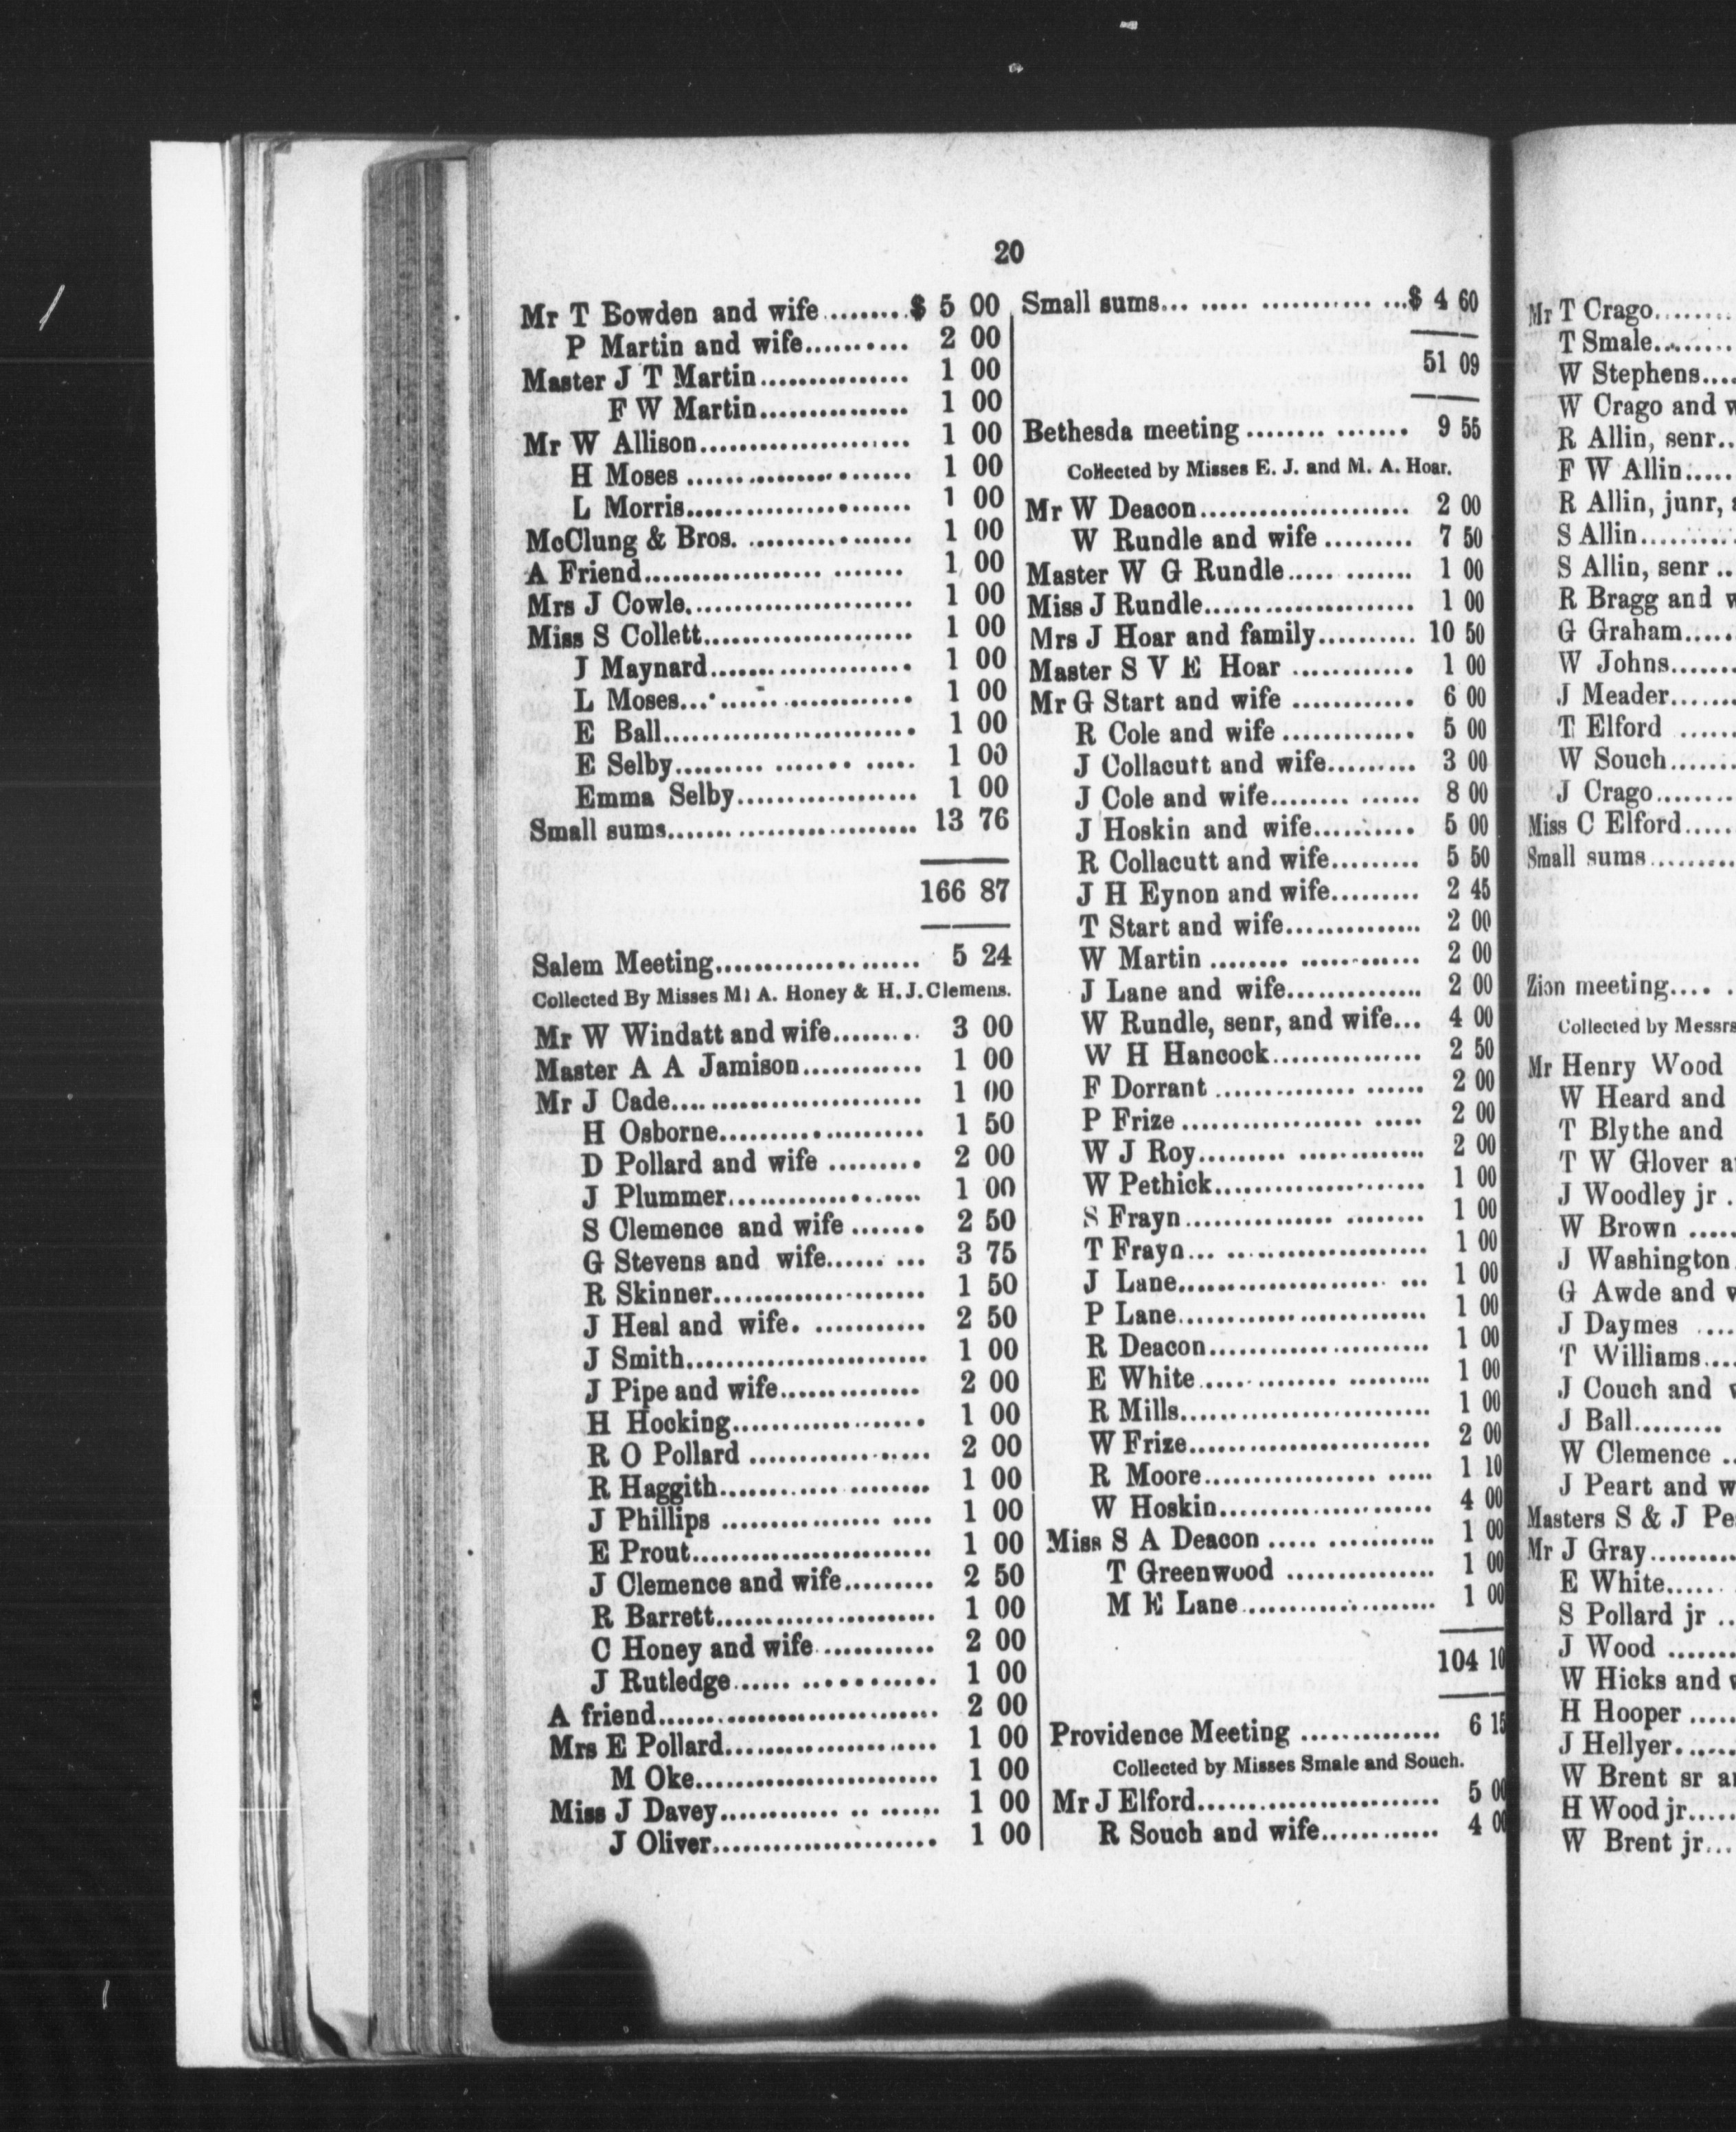 20
Mr T Bowden and wife........$ 5 00
P Martin and wife.......... 2 00
Master J T Martin............... 1 00
F W Martin............... 1 00
Mr W Allison..................... 1 00
H Moses ...................... 1 00
L Morris...................... 1 00
McClung & Bros. ................ 1 00
A Friend.......................... 1 00
Mrs J Cowle....................... 1 00
Miss S Collett..................... 1 00
J Maynard.................... 1 00
L Moses....................... 1 00
E Ball......................... 1 00
E Selby......... ....... ..... 1 00
Emma Selby.................. 1 00
Small sums......................... 13 76
166 87
Salem Meeting.................... 5 24
Collected By Misses M. A. Honey & H. J. Clemens.
Mr W Windatt and wife......... 3 00
Master A A Jamison............ 1 00
Mr J Cade......................... 1 00
H Osborne.................... 1 50
D Pollard and wife ......... 2 00
J Plummer................... 1 00
S Clemence and wife ....... 2 50
G Stevens and wife...... ... 3 75
R Skinner..................... 1 50
J Heal and wife. ........... 2 50
J Smith........................ 1 00
J Pipe and wife.............. 2 00
H Hocking................... 1 00
R O Pollard .................. 2 00
R Haggith..................... 1 00
J Phillips ................ .... 1 00
E Prout........................ 1 00
J Clemence and wife......... 2 50
R Barrett...................... 1 00
C Honey and wife ........... 2 00
J Rutledge...... ........... 1 00
A friend............................ 2 00
Mrs E Pollard..................... 1 00
M Oke........................ 1 00
Miss J Davey............ .. ...... 1 00
J Oliver...................... 1 00
Small sums... ..... ........... ...$ 4 60
51 09
Bethesda meeting ........ ....... 9 55
Collected by Misses E. J. and M. A. Hoar.
Mr W Deacon..................... 2 00
W Rundle and wife ......... 7 50
Master W G Rundle..... ....... 1 00
Miss J Rundle..................... 1 00
Mrs J Hoar and family.......... 10 50
Master S V E Hoar ............ 1 00
Mr G Start and wife ............ 6 00
R Cole and wife ............. 5 00
J Collacutt and wife......... 3 00
J Cole and wife........ ...... 8 00
J Hoskin and wife.......... 5 00
R Collacutt and wife......... 5 50
J H Eynon and wife......... 2 45
T Start and wife.............. 2 00
W Martin ........ ............ 2 00
J Lane and wife.............. 2 00
W Rundle, senr, and wife... 4 00
W H Hancock............... 2 50
F Dorrant .............. ...... 2 00
P Frize .................. ..... 2 00
W J Roy......... ............. 2 00
W Pethick..................... 1 00
S Frayn............... ........ 1 00
T Frayn... .................... 1 00
J Lane.................... ... 1 00
P Lane......................... 1 00
R Deacon...................... 1 00
E White..... ........ ......... 1 00
R Mills......................... 1 00
W Frize........................ 2 00
R Moore................. ..... 1 10
W Hoskin..................... 4 00
Miss S A Deacon ..... ........... 1 00
T Greenwood ............... 1 00
M E Lane.................... 1 00
104 10
Providence Meeting .............. 6 15
Collected by Misses Smale and Souch.
Mr J Elford........................ 5 00
R Souch and wife............ 4 00
Mr T Crago........
T Smale........
W Stephens....
W Crago and
R Allin, senr..
F W Allin.....
R Allin, junr,
S Allin..........
S Allin, senr ..
R Bragg and
G Graham.....
W Johns.......
J Meader.......
T Elford ......
W Souch.......
J Crago........
Miss C Elford.....
Small sums.........
Zion meeting.... .
Collected by Messrs
Mr Henry Wood
W Heard and
T Blythe and
T W Glover
J Woodley jr .
W Brown .....
J Washington.
G Awde and
J Daymes ....
T Williams....
J Couch and
J Ball.........
W Clemence ..
J Peart and
Masters S & J
Mr J Gray.........
E White.....
S Pollard jr ..
J Wood .......
W Hicks and
H Hooper .....
J Hellyer......
W Brent sr
H Wood jr.....
W Brent jr...